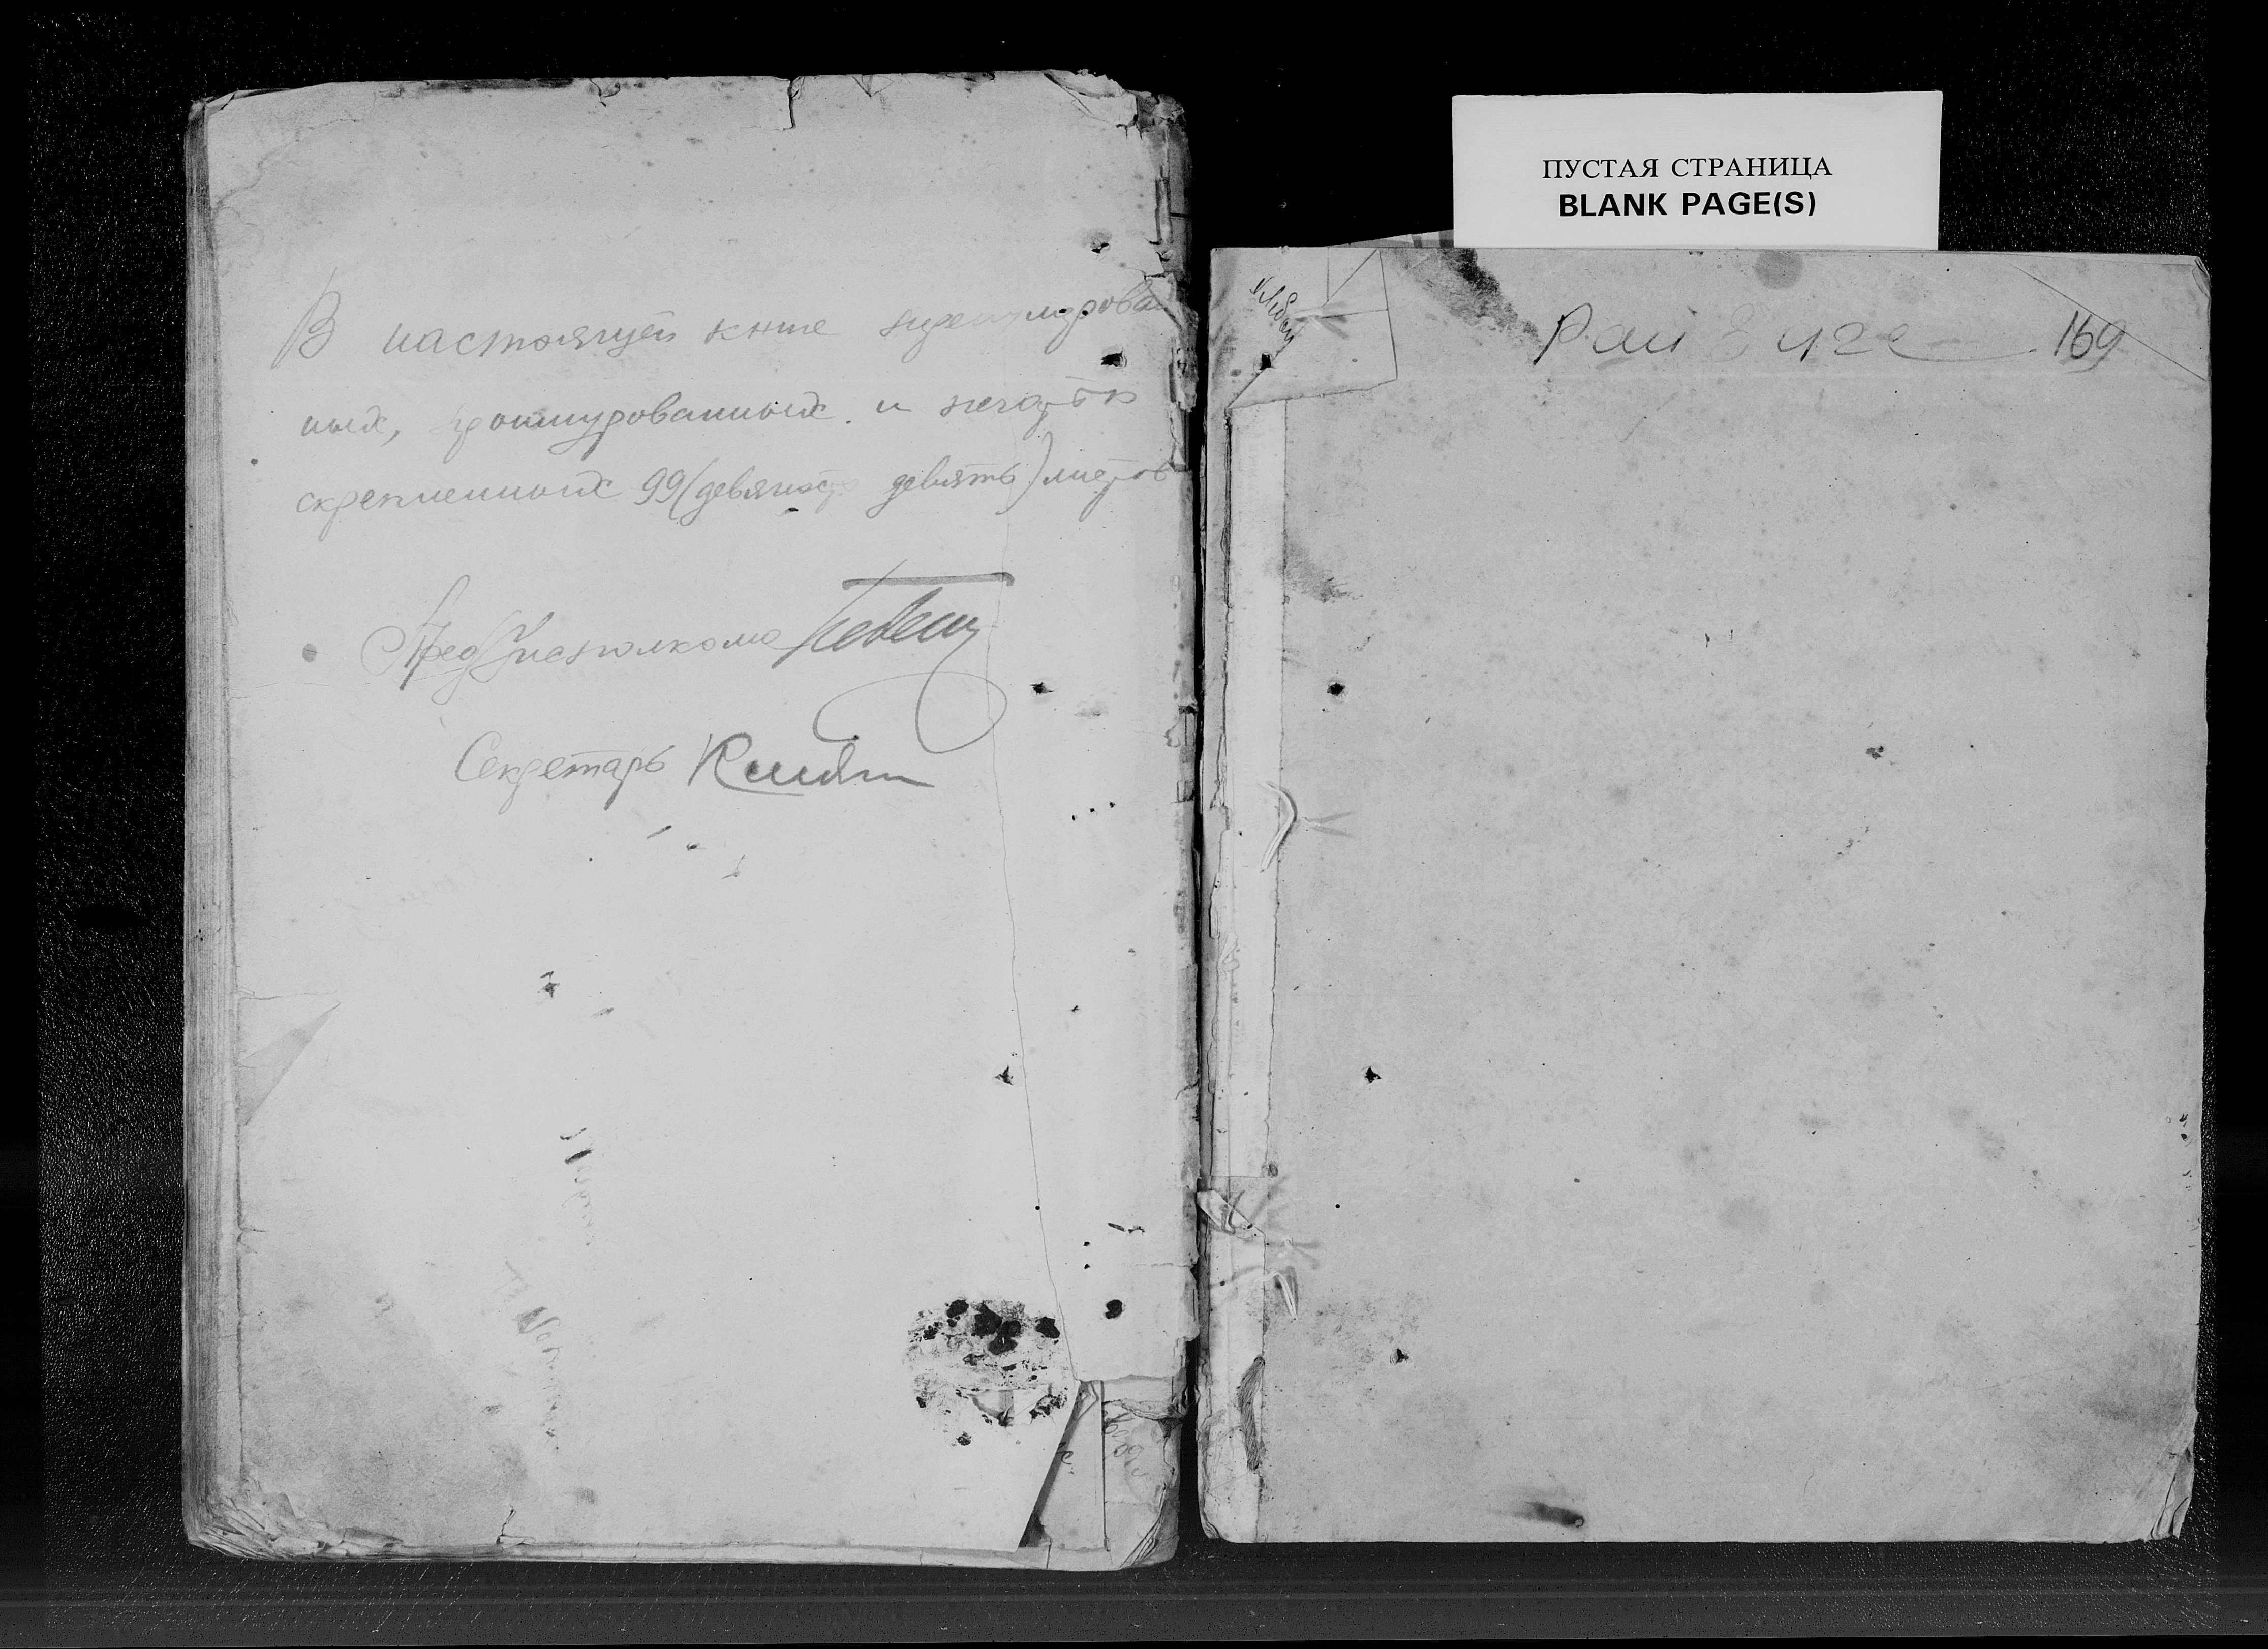 В настоящей кните нумерирован
ных, прошнурованных и печатью
скрепленных 99 (девяносто девять) листов
Пред Исполкома
Секретарь
ПУСТАЯ СТРАНИЦА
BLANK PAGE(S)
169